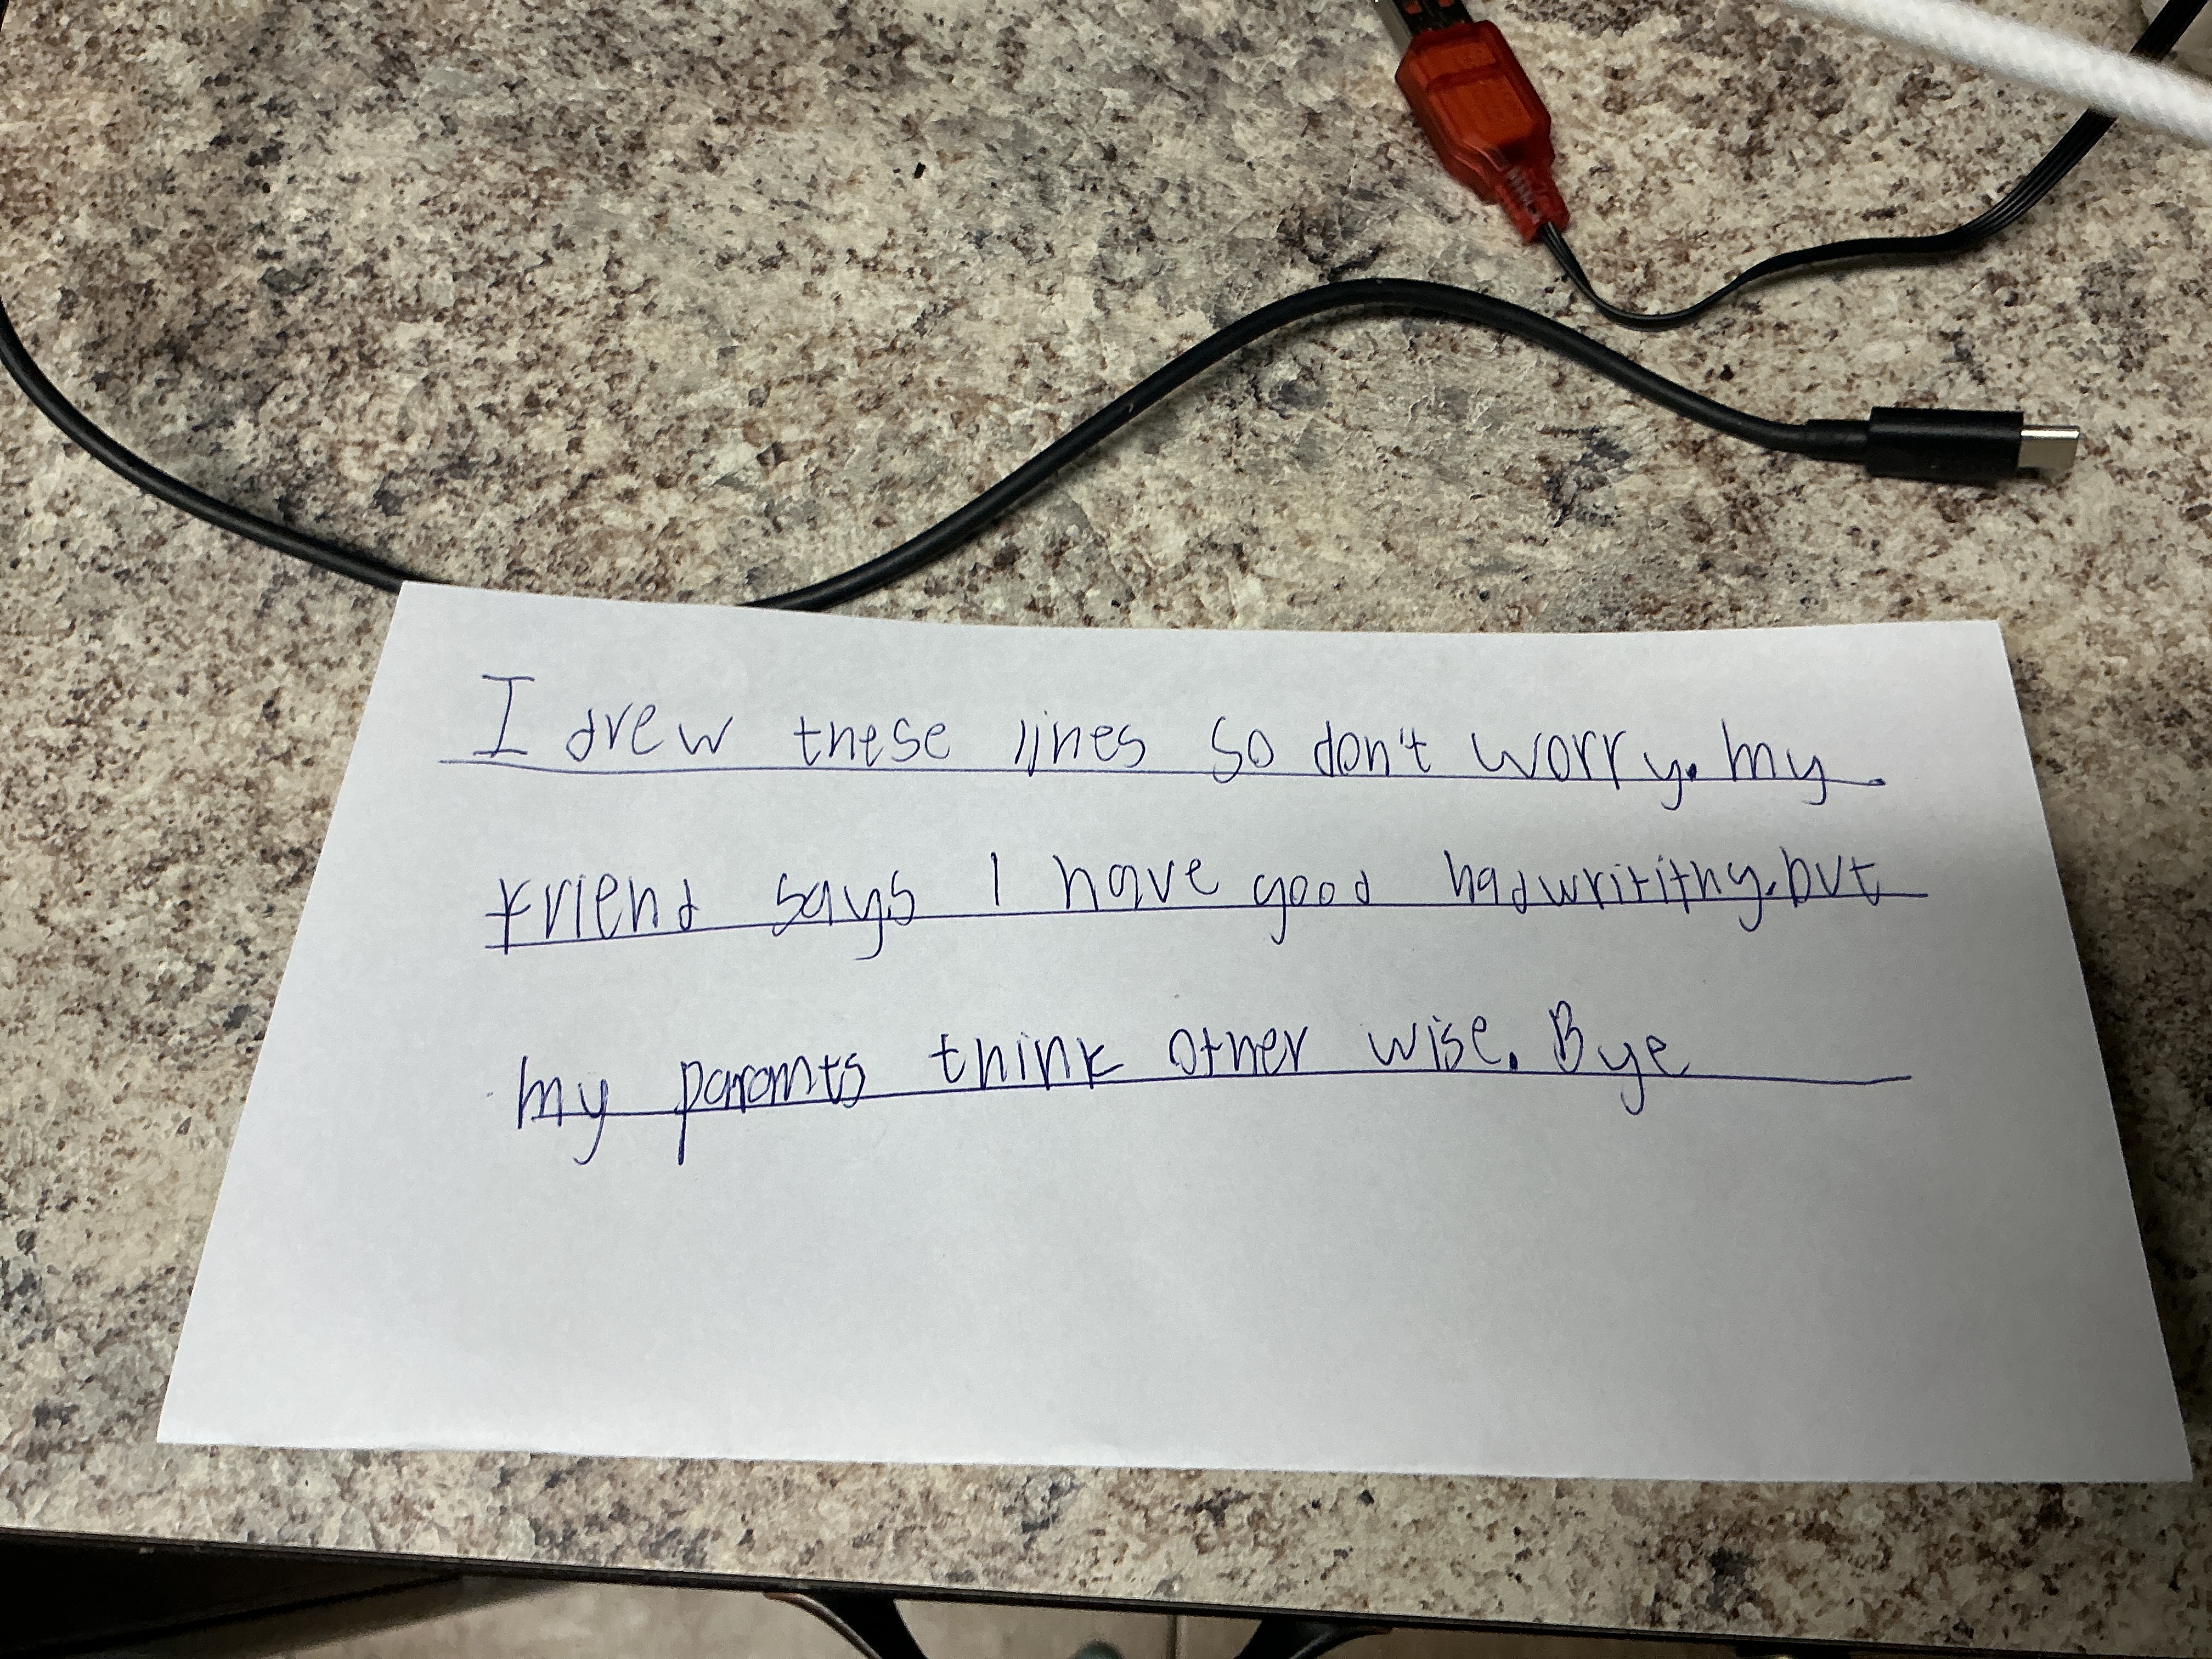 I drew these lines so don't worry. my
friend says I have good hadwritithy. but
my paromts think other wise. Bye